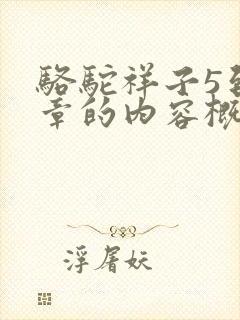 骆驼祥子5至
章的内容概
浮屠妖